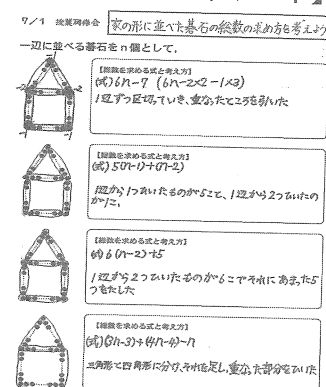 7/1 授業研修会 家の形に並べた碁石の総数の求め方を考えよう
一辺に並べる碁石をn個として、
【総数を求める式と考え方】
(式) 6n-7 (6n-2×2-1×3)
1辺ずつ区切っていき、重なったところを引いた
-1
-2 -2
-1 -1
【総数を求める式と考え方】
(式) 5(n-1)+(n-2)
1辺から1つひいたものが5こと、1辺から2つひいたの
が1こ。
【総数を求める式と考え方】
(式) 6(n-2)+5
1辺から2つひいたものが6こでそれにあまった5
つをたした
【総数を求める式と考え方】
(式) (3n-3)+(4n-4)-n
三角形と四角形に分け、それを足し、重なった部分をひいた